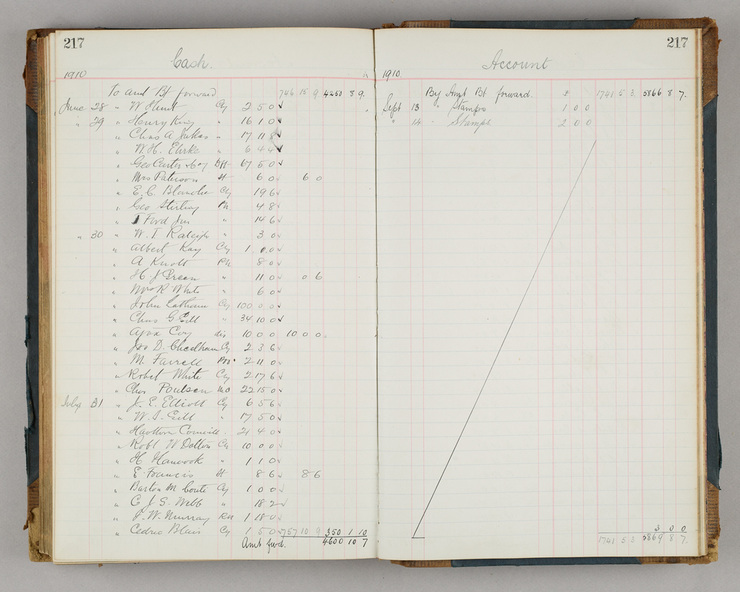 217
Cash.
1910
To amt Bt forward 746 15 9 4250 8 9.
June 28 " W Hunt Cy 2 5 0
" 29 " Henry King " 16 1 0
" Chas A "
" W. H. " 6 4 4
" Geo Carter 67 5 0
" Mrs Paterson St 6 0 6 0
" E. C. Blanche Cy 19 6
" Geo Sterling 4 8
" Ford Jnr " 14 6
" 30 " W. T. Raleigh " 3 0
" Albert Kay Cy 1 0 0
" A Knott 8 0
" H J Green " 11 0 0 6
" R White " 6 0
" John Calhoun Cy 100 0 0
" Chas G Gill " 34 10 0
" Coy 10 0 0 10 0 0
" Jas D. Cheedham Cy 2 3 6
" M. Farrell 2 11 0
" Robet White Cy 2 17 6
" Chas Poulsen 22 15 0
July 31 " J. E. Elliott Cy 6 5 6
" W. J. Gill " 17 5 0
" 21 4 0
" Robt W Dalton 10 0 0
" H. Hancock " 1 1 0
" E. Francis St 8 6 8 6
" Barton M Coutie Cy 1 0 0
" C J S. Webb " 18 2
" P. W. Murray 1 18 0
" Cedric Blair Cy 1 5 0 757 10 9 350 1 10
Amt fwd. 4600 10 7
217
Account
1910.
By Amt Bt forward. 1741 5 3 5866 8 7.
Sept 13 " Stamps 1 0 0
" 14 " Stamps 2 0 0
3 0 0
1741 5 3 5869 8 7.